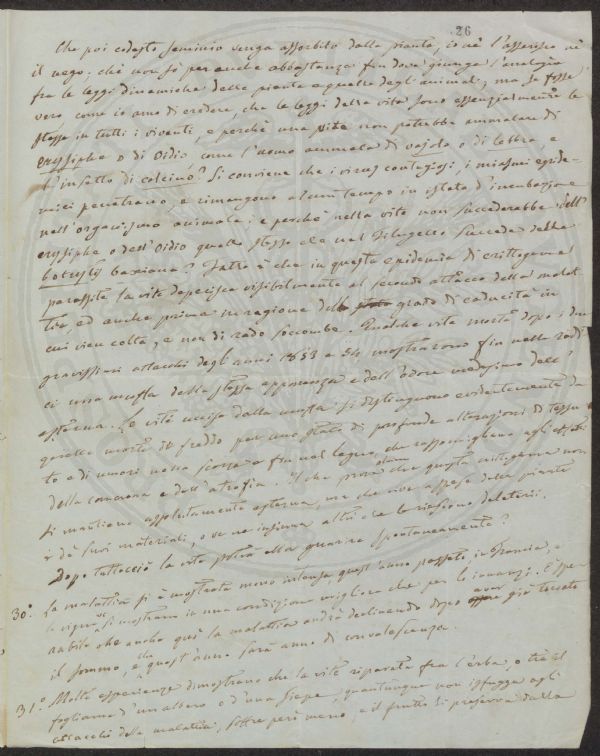 26
Che poi codesto seminio venga assorbito dalla pianta, io nè l'asserisco nè
il nego: chè non so per anche abbastanza fin dove giunga l'analogia
fra le leggi dinamiche delle piante e quelle degli animali; ma se fosse
vero come io amo di credere, che le leggi della vita sono essenzialmente le
stesse in tutti i viventi, e perchè una vite non potrebbe ammalare di
erysiphe o di Oidio come l'uomo ammala di vajolo o di lebbra, e
l'insetto di calcino? Si conviene che i virus contagiosi, i miasmi epide-
mici penetrano, e rimangono alcun tempo in istato d'incubazione
nell'organismo animale: e perchè nella vite non succederebbe dell'
erysiphe o dell'Oidio quello stesso che nel Filugello succede della
botrytis bassiana? Fatto è che in questa epidemia di crittogama
parassita la vite deperisce visibilmente al secondo attacco della malat-
tia, ed anche prima in ragione del grado di caducità in
cui vien colta, e non di rado soccombe. Qualche vite morta dopo i due
gravissimi attacchi degli anni 1853 e 54 mostrarono fin nelle radi
ci una muffa della stessa apparenza e dell'odore medesimo dell'
esterna. Le viti uccise dalla muffa si distinguono evidentemente da
quelle morte di freddo per uno stato di profonda alterazione di tessu
to e di umori nella scorza e fin nel legno, che rassomigliano agli effetti
della cancrena e dell'atrofia. Il che prova che questa crittogama non
si mantiene assolutamente esterna, ma che vive a spese della pianta
e de' suoi materiali, o ve ne insinua altri che le riescono deleterii.
Dopo tuttocciò la vite potrà ella guarire spontaneamente?
30° La malattia si è mostrata meno intensa quest'anno passato in Francia, e
le vigne vi si mostrano in una condizione migliore che per lo innanzi. È spe-
rabile che anche qui la malattia andrà declinando dopo aver già toccato
il sommo, e che quest'anno sarà anno di convalescenza.
31° Molte esperienze dimostrano che la vite riparata fra l'erba, o tra il
fogliame d'un albero o d'una siepe, quantunque non isfugga agli
attacchi della malattia, soffre però meno, e il frutto si preserva dalla